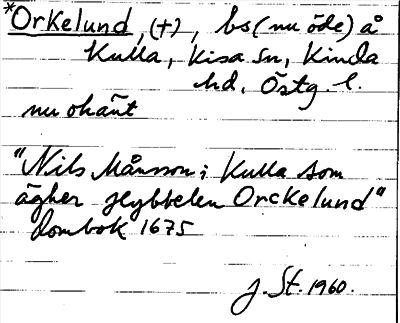 *Orkelund, (+), bs (nu öde) å
Kulla, Kisa sn, Kinda
hd, Östg. l.
nu okänt
"Nils Månsson i Kulla som
ägher flybbelen Orckelund"
dombok 1675
J. St. 1960.